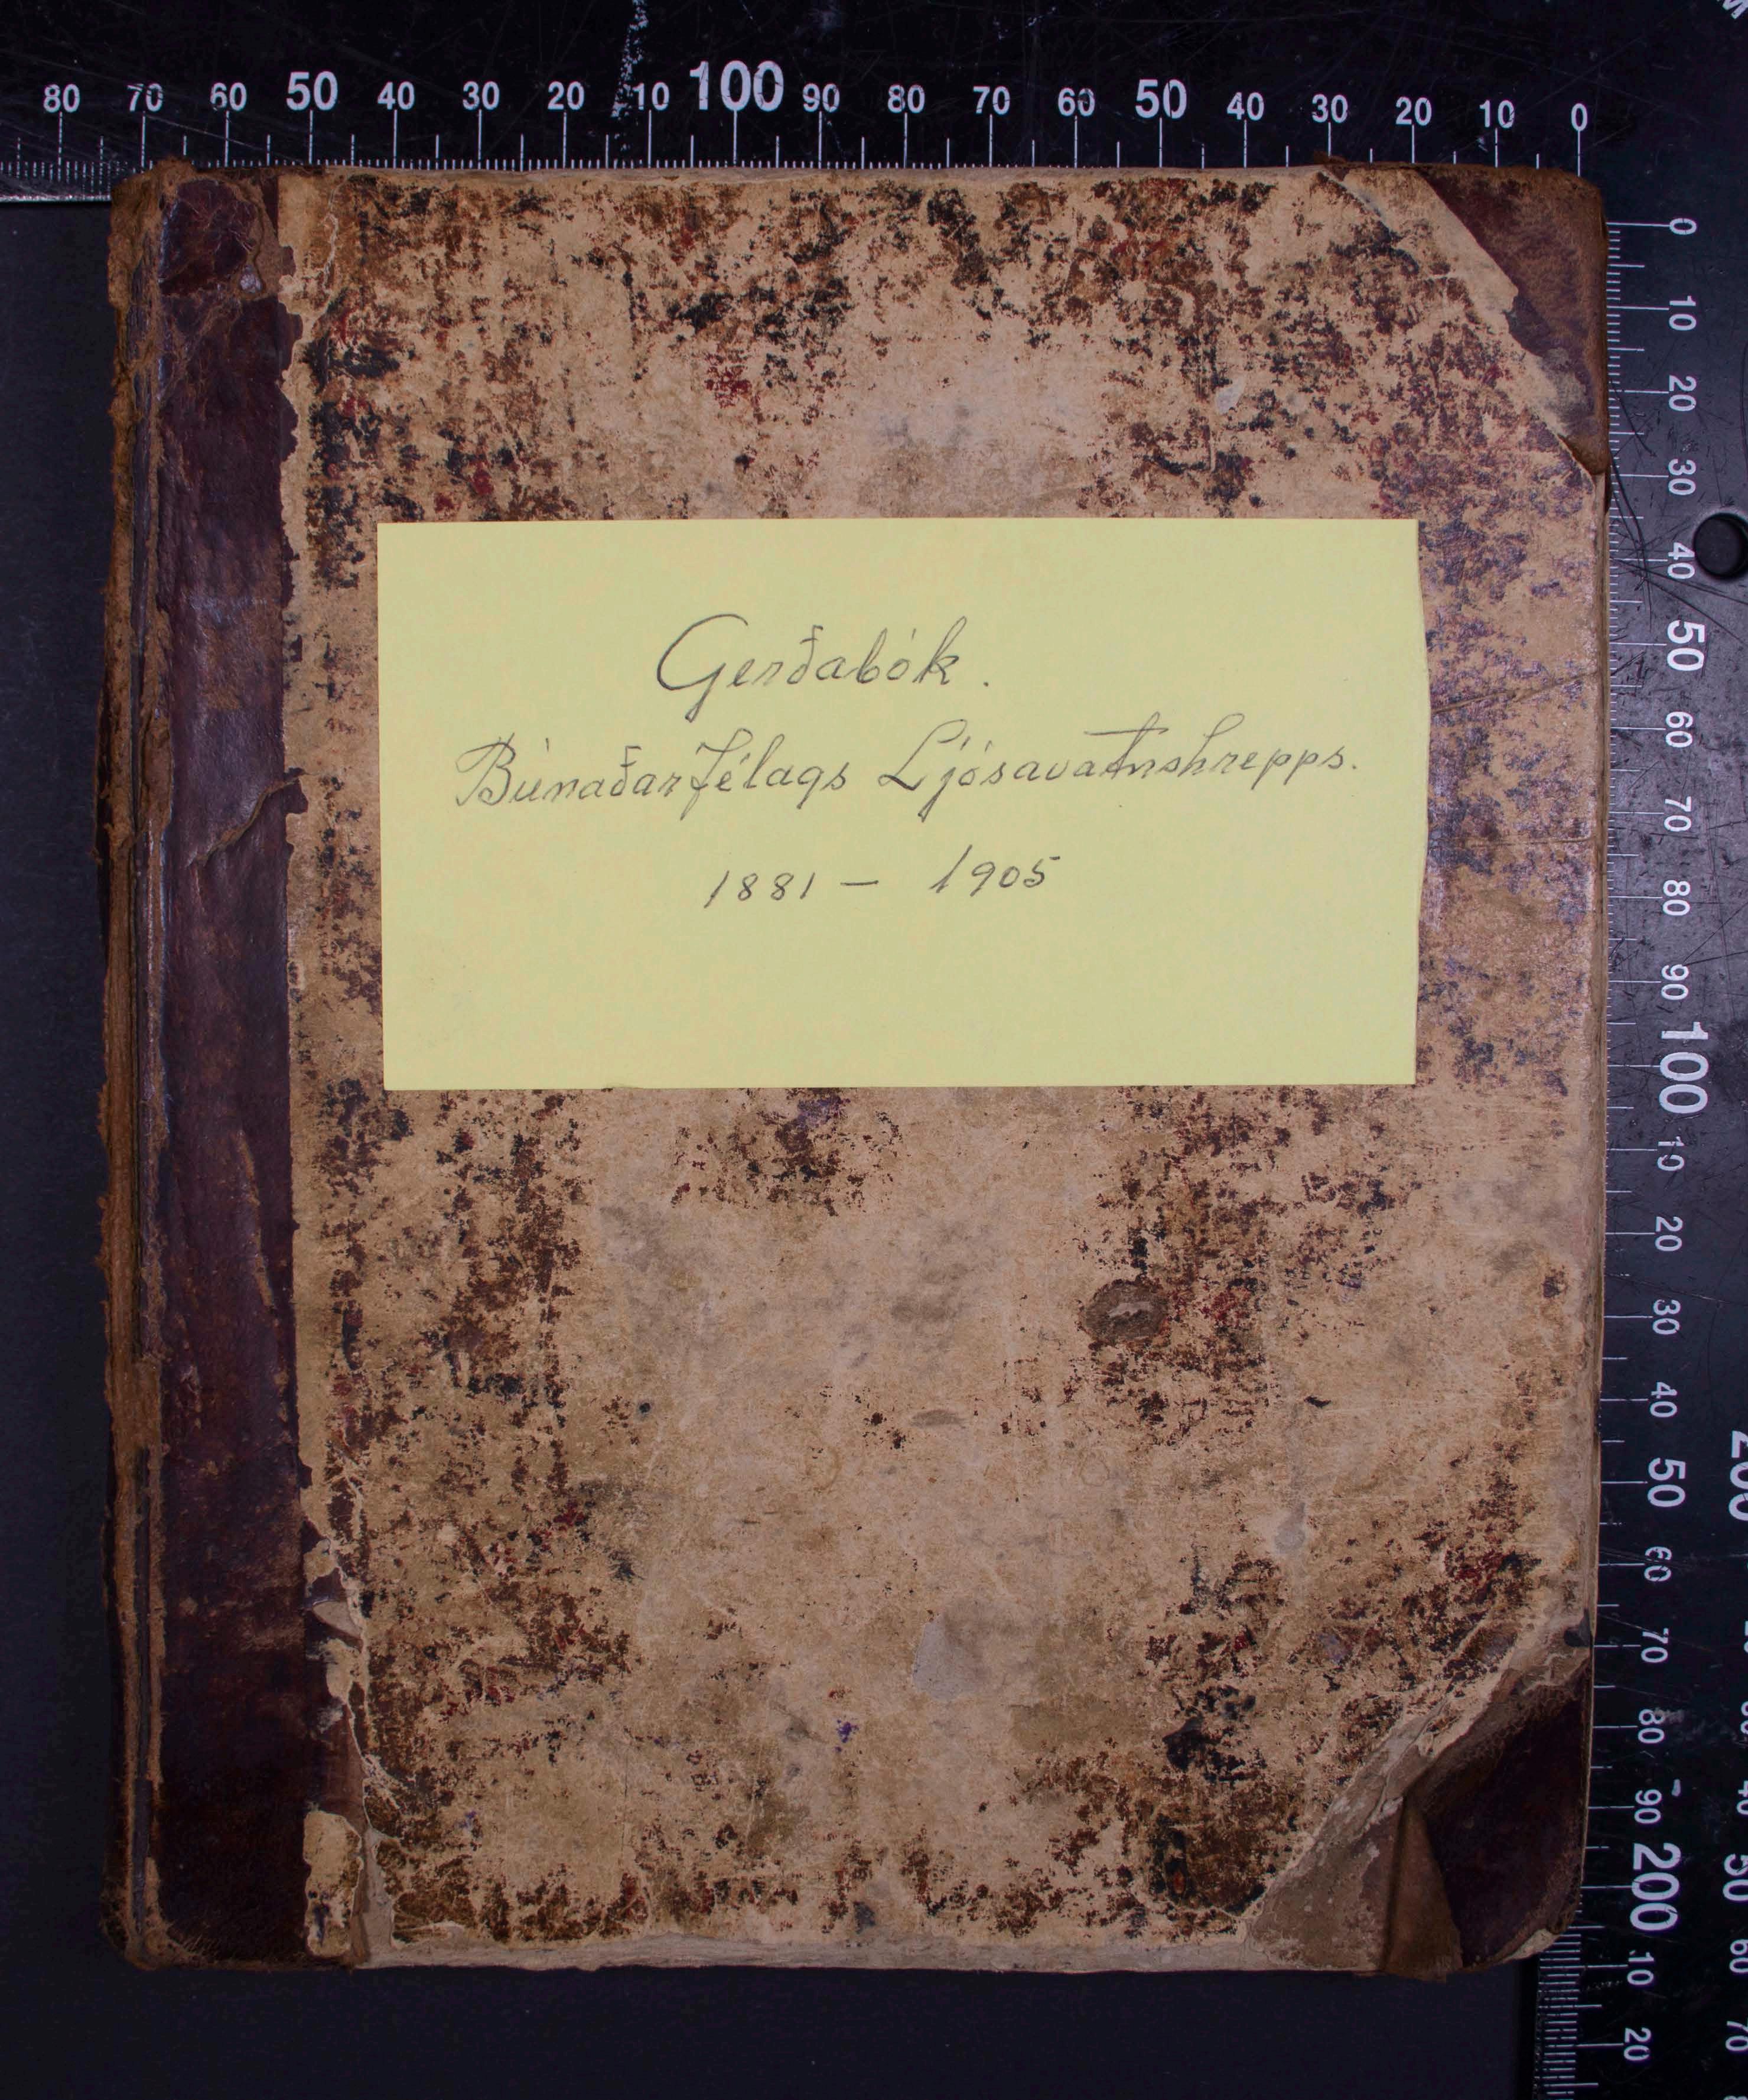 80 70 60 50 40 30 20 10 100 90 80 70 60 50 40 30 20 10 0
Gerðabók.
Búnaðarfélags Ljósavatnshrepps.
1881 – 1905
0
10
20
30
40
50
60
70
80
90
100
10
20
30
40
50
60
70
80
90
200
10
20
200
50
60
70